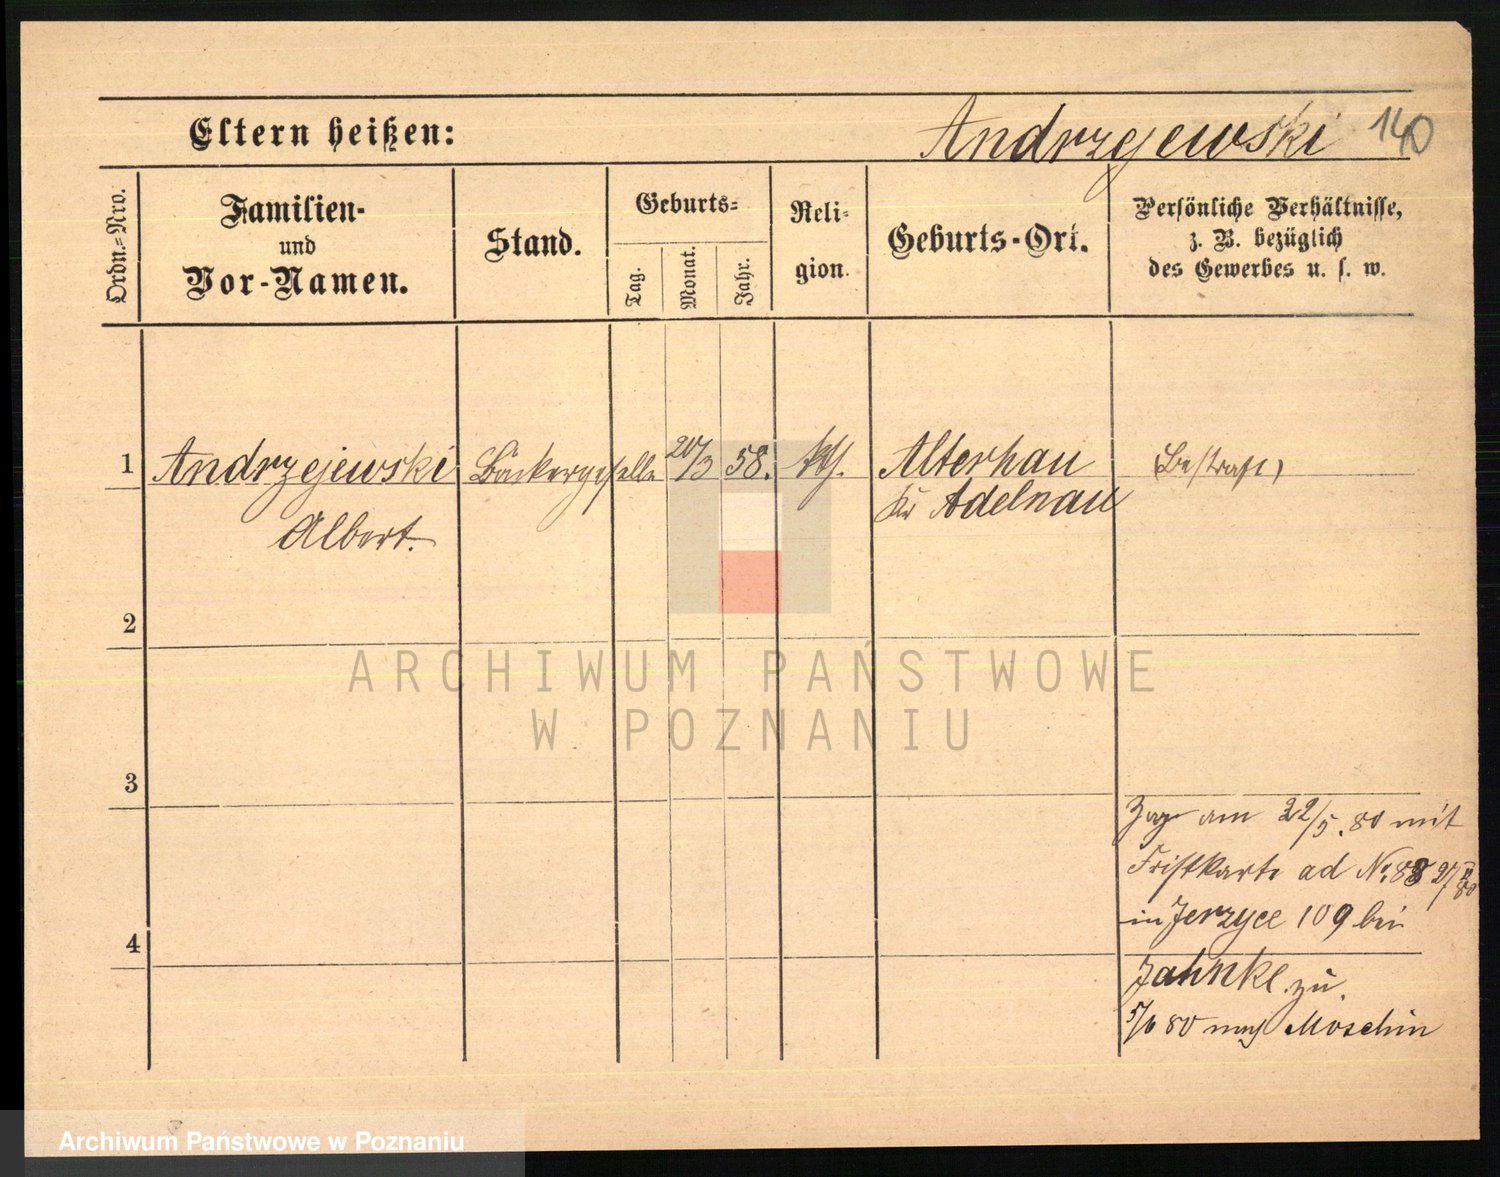 Eltern heißen:
Andrzejewski 140
Ordn.-Nro.
Familien-
und
Vor-Namen.
Stand.
Geburts-
Tag.
Monat.
Jahr.
Reli-
gion.
Geburts-Ort.
Persönliche Verhältnisse,
z. B. bezüglich
des Gewerbes u. s. w.
1 Andrzejewski Bäckergeselle 20/3 58. kth. Alterhau (Bestraft)
Albert. Kr Adelnau
2
3
4
Zog am 22/5. 80 mit
Fristkarte ad No. 88
in Jerzyce 109 bei
Jahnke zu.
5/6 80 nach Moschin
ARCHIWUM PAŃSTWOWE
W POZNANIU
Archiwum Państwowe w Poznaniu